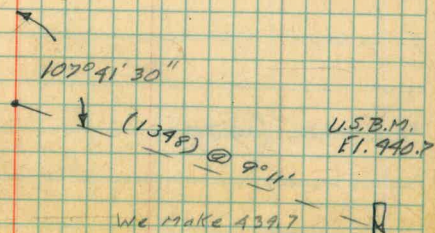 107°41'30"
(1348) @ 9°11'
U.S.B.M.
El. 440.7
We make 439.7